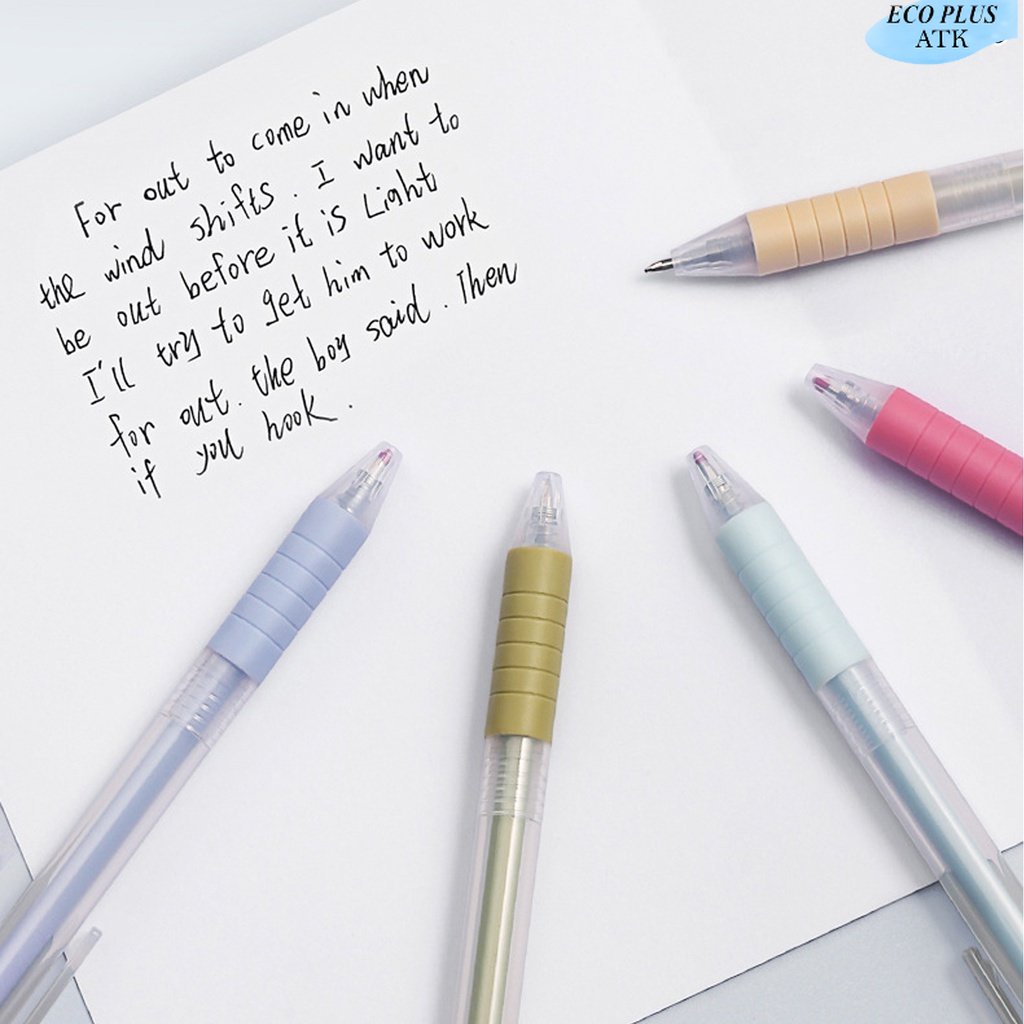 ECO PLUS
ATK
For out to come in when
the wind shifts. I want to
be out before it is Light
I'll try to get him to work
for out. the boy said. Then
if you hook.